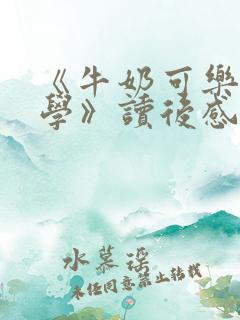 《牛奶可樂
學》讀後感
水慕瑶
未經同意禁止轉載